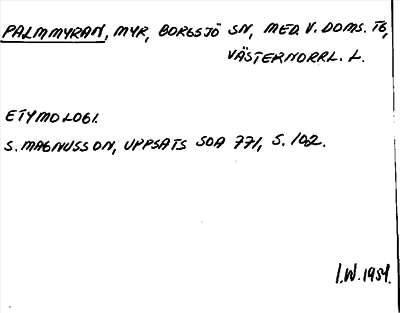 PALMMYRAN, MYR, BORGSJÖ SN, MED. V. DOMS. TG,
VÄSTERNORRL. L.
ETYMOLOGI.
S. MAGNUSSON, UPPSATS SOA 771, S. 102.
I.W. 1981.